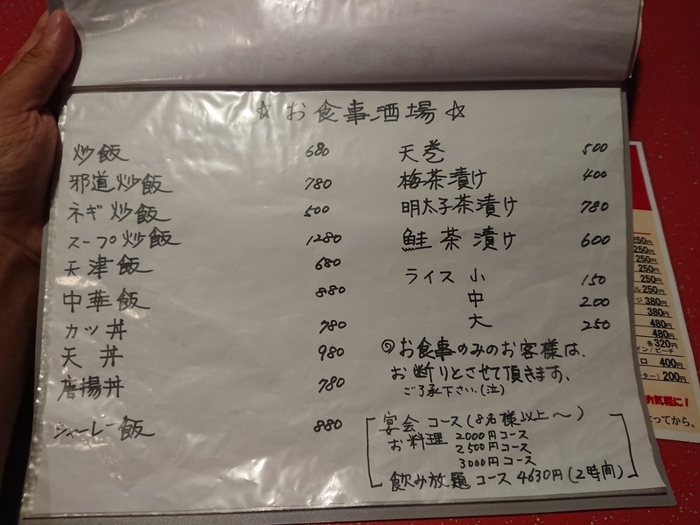 ☆お食事酒場☆
炒飯 680
邪道炒飯 780
ネギ炒飯 500
スープ炒飯 1280
天津飯 680
中華飯 880
カツ丼 780
天丼 980
唐揚丼 780
ジャーレー飯 880
天巻 500
梅茶漬け 400
明太子茶漬け 780
鮭茶漬け 600
ライス 小 150
中 200
大 250
◎お食事のみのお客様は、
お断りとさせて頂きます、
ご了承下さい.(泣)
宴会コース(8名様以上〜)
お料理 2000円コース
2500円コース
3000円コース
飲み放題コース 4630円(2時間)
250円
250円
250円
250円
250円
ル 250円
380円
380円
480円
480円
各320円
400円
200円
お気軽に!
ってから。